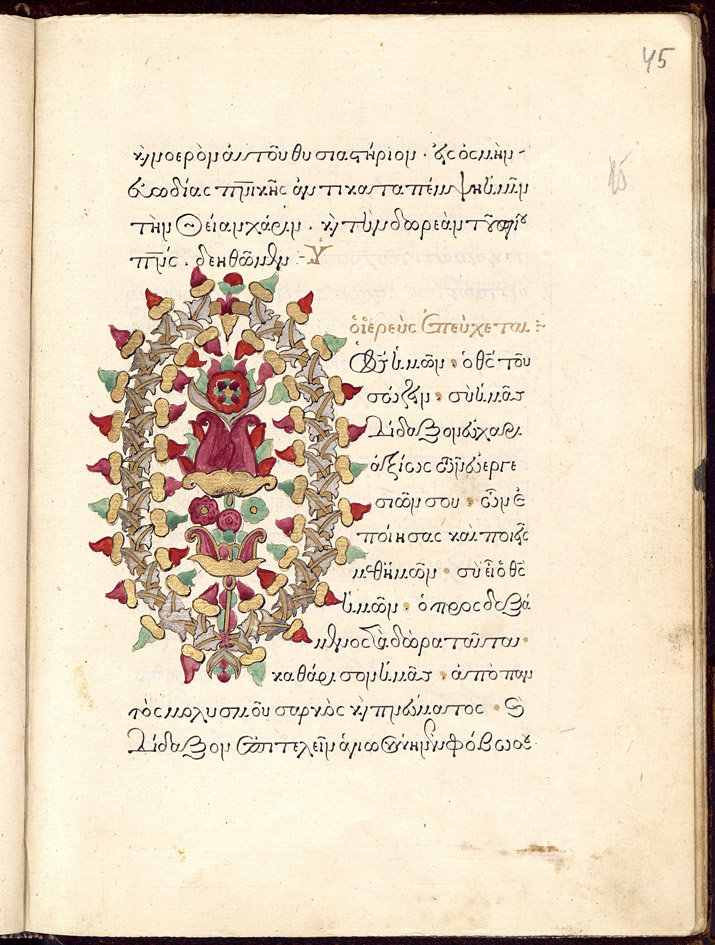 45
κ(αὶ) νοερὸν αὐτοῦ θυσιαστήριον · εἰς ὀσμὴν
εὐωδίας πν̅ικῆς ἀντικαταπέμψη ἡμῖν
τὴν θείαν χάριν · κ(αὶ) τὴν δωρεὰν τοῦ ἁγίου
πν̅ς · δεηθῶμεν :-
ὁ ἱερεὺς ἐπεύχεται :-
Ὁ θς ἡμῶν · ὁ θς τοῦ
σώζειν · σὺ ἡμᾶς
δίδαξον εὐχαρι
ἀξίως εὐεργε
σιῶν σου · ὧν ἐ
ποίησας καὶ ποιεῖς
μεθ' ἡμῶν · σὺ εἶ ὁ θς
ἡμῶν · ὁ προσδεξά
μενος τὰ δῶρα ταῦτα ·
καθάρισον ἡμᾶς · ἀπὸ παν
τὸς μολυσμοῦ σαρκὸς κ(αὶ) πνεύματος ·
δίδαξον ἐπιτελεῖν ἁγιωσύνην ἐν φόβω σου